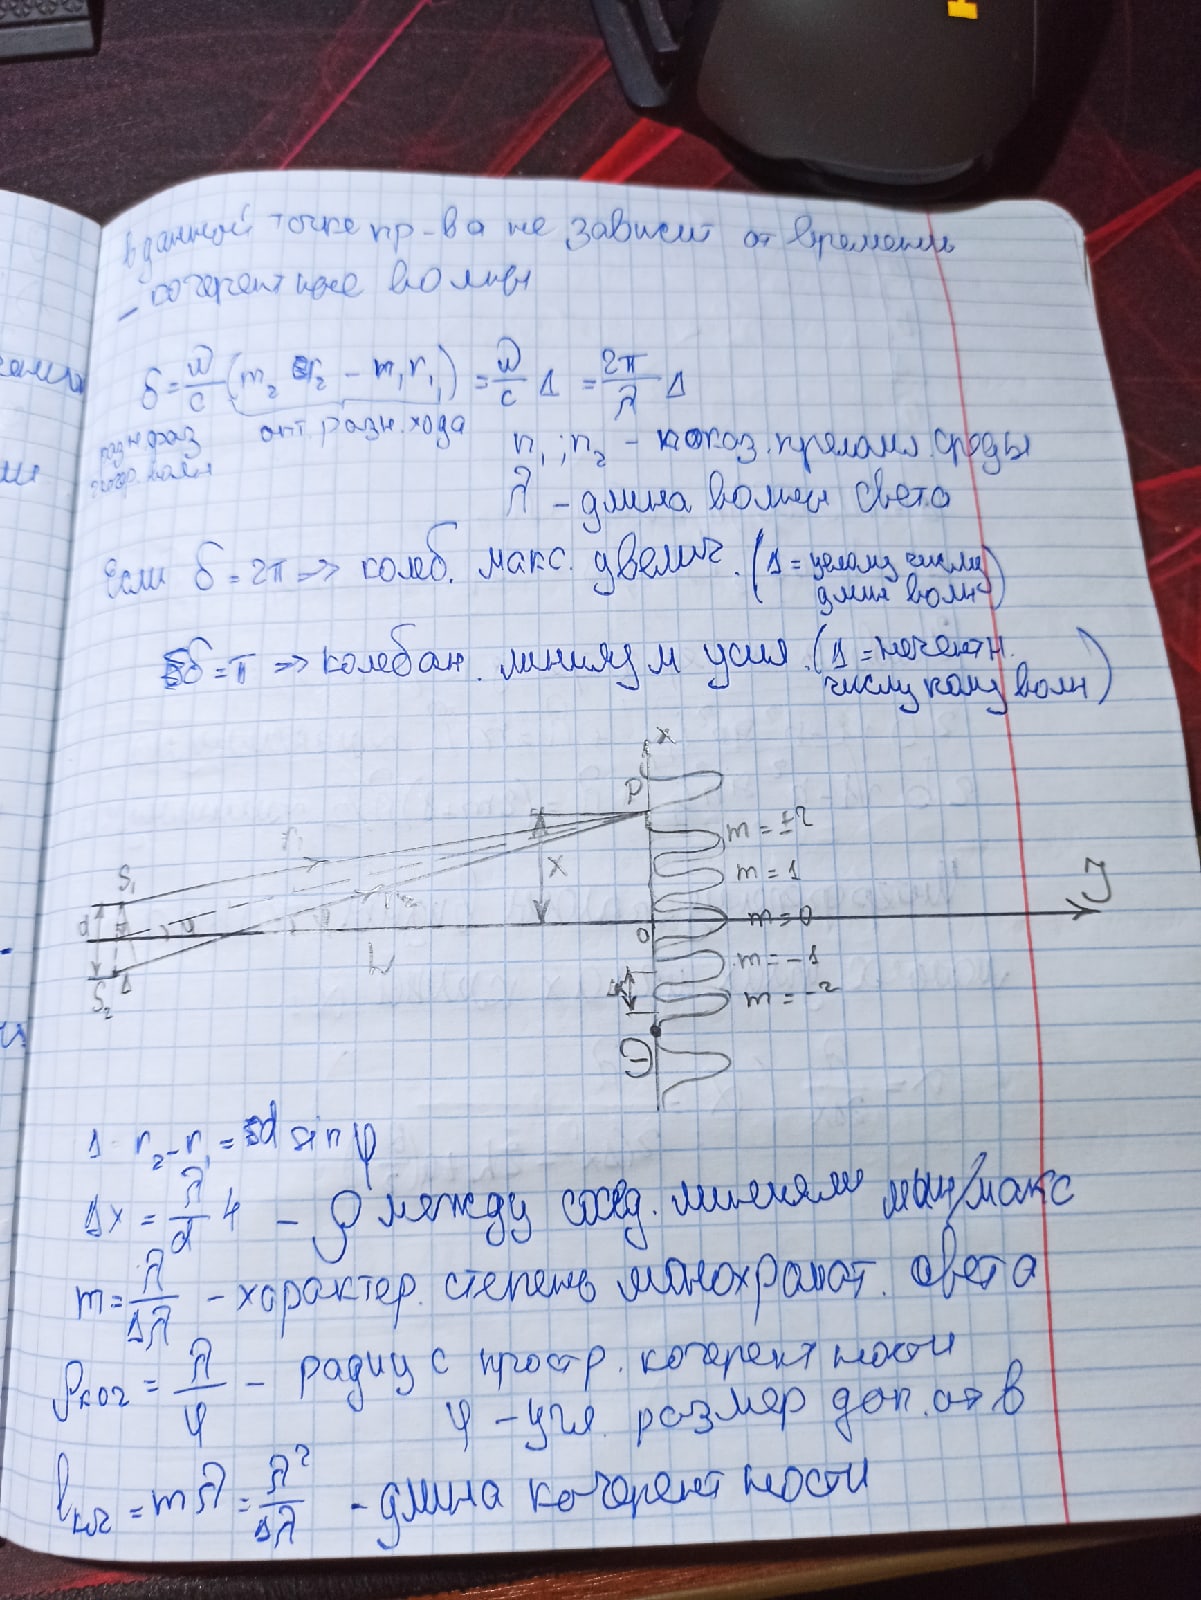 в данной точке пр-ва не зависит от времени
– когерентные волны
δ = ω/c (n₂ r₂ – n₁ r₁) = ω/c Δ = 2π/λ Δ
разн. фаз опт. разн. хода
когер. волн
n₁; n₂ – показ. прелом. среды
λ – длина волны света
Если δ = 2π => колеб. макс. увелич. (Δ = целому числу
длин волн)
δ = π => колебан. минимум усил. (Δ = нечетн.
числу полу волн)
x
P
m = ±2
r₁
S₁
x
m = 1
J
d
φ
φ
r₂
0
m = 0
L
m = -1
S₂
Δ
m = -2
Δ r₂ – r₁ = d sin φ
Δx = λ/d L – ρ между сосед. линиями мин/макс
m = λ/Δλ – характер. степень монохромат. света
ρког = λ/φ – радиус простр. когерентности
φ – угл. размер
lког = mλ = λ²/Δλ – длина когерентности